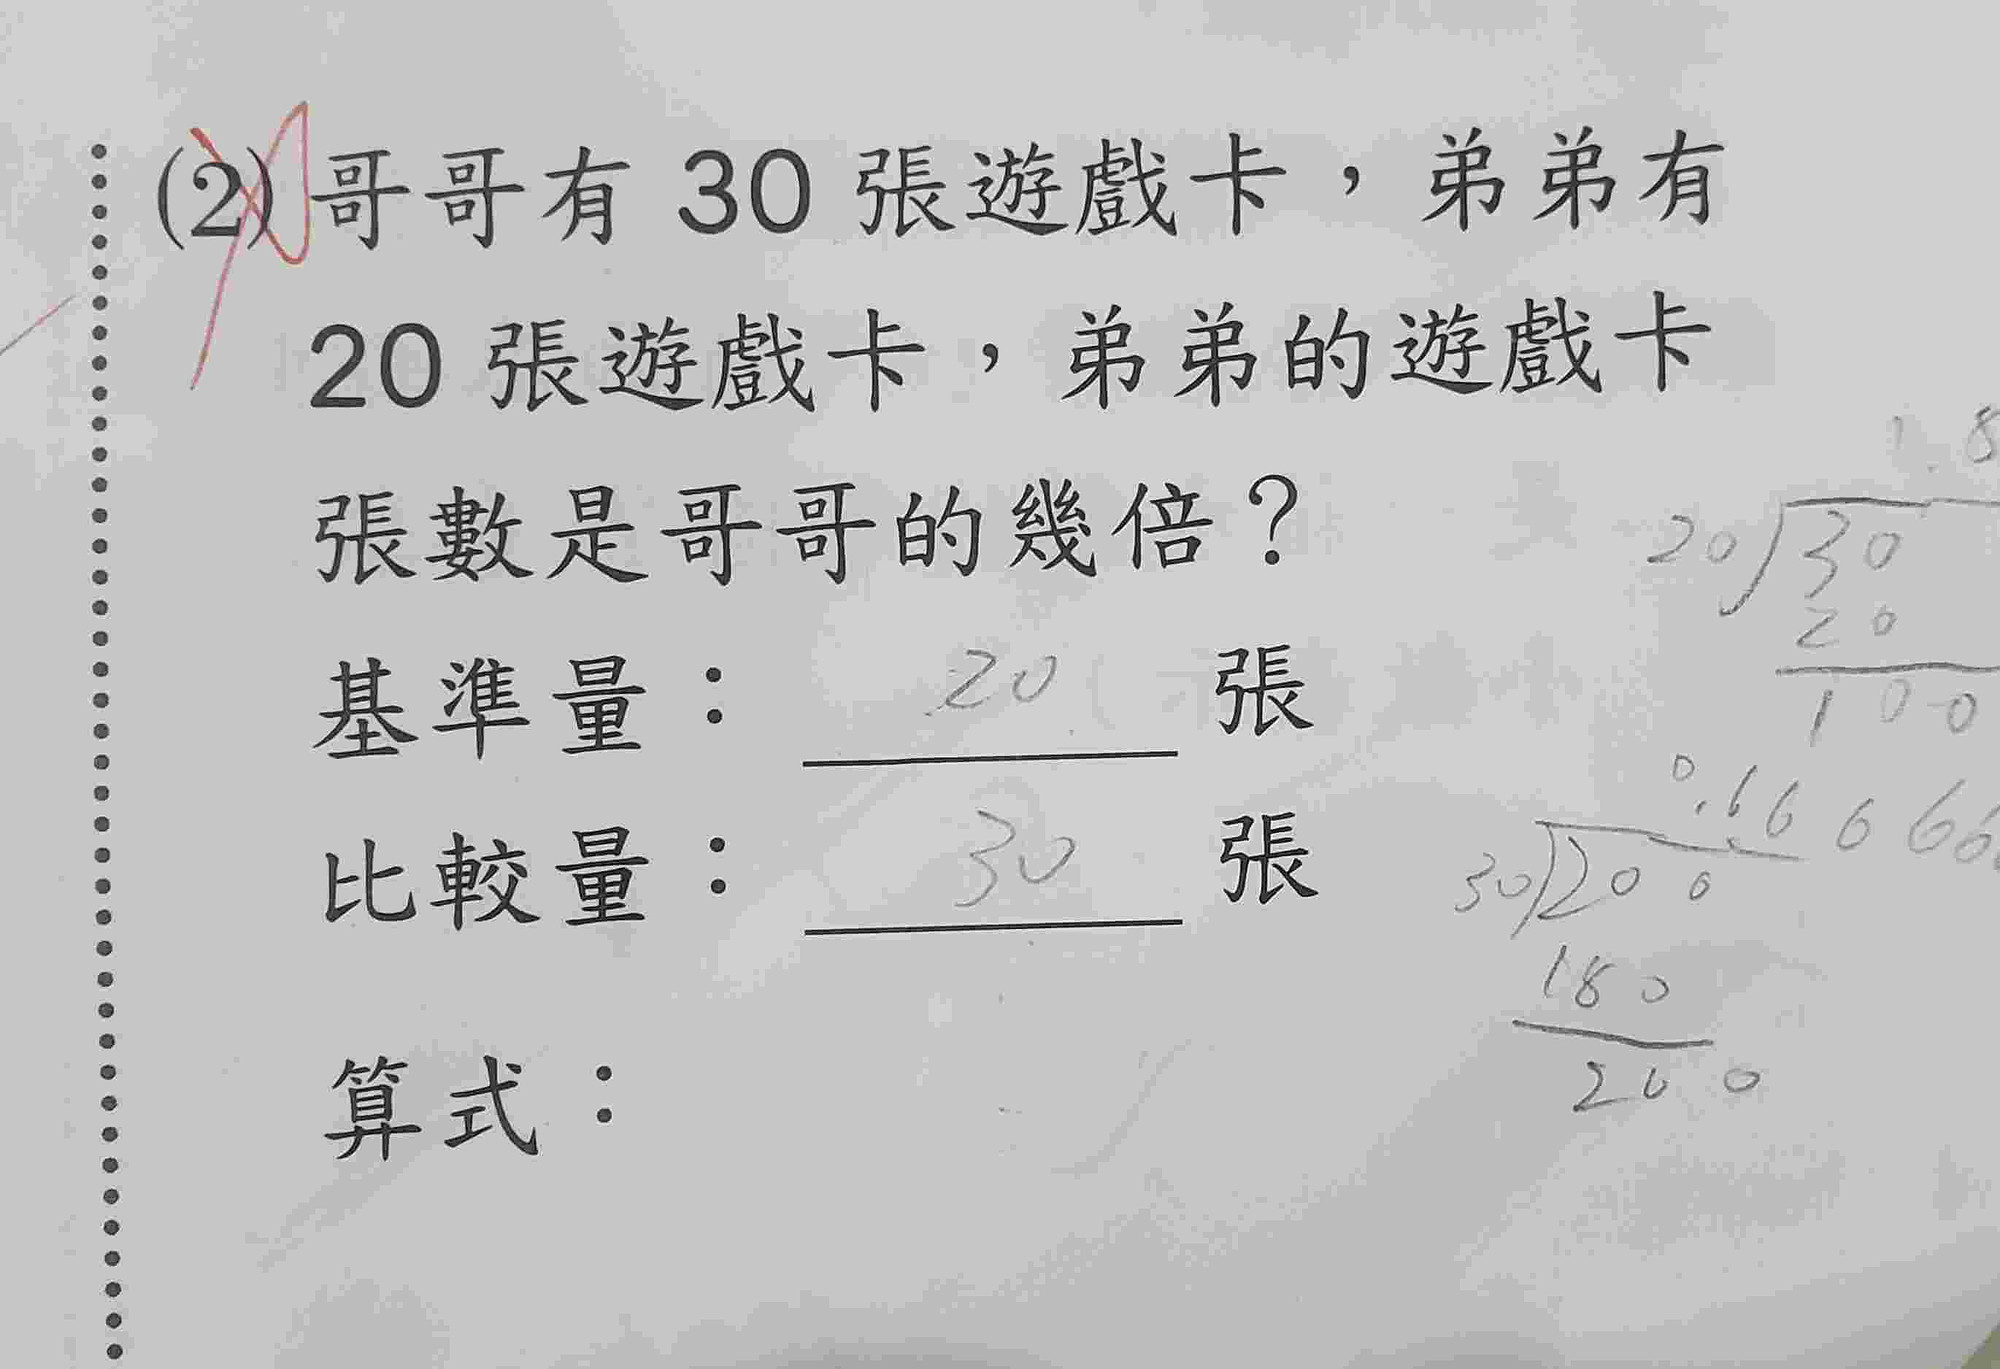 (2) 哥哥有 30 張遊戲卡，弟弟有
20 張遊戲卡，弟弟的遊戲卡
張數是哥哥的幾倍？
基準量： 20 張
比較量： 30 張
算式：
1.8
20 30
20
100
0.66666
30 200
180
200